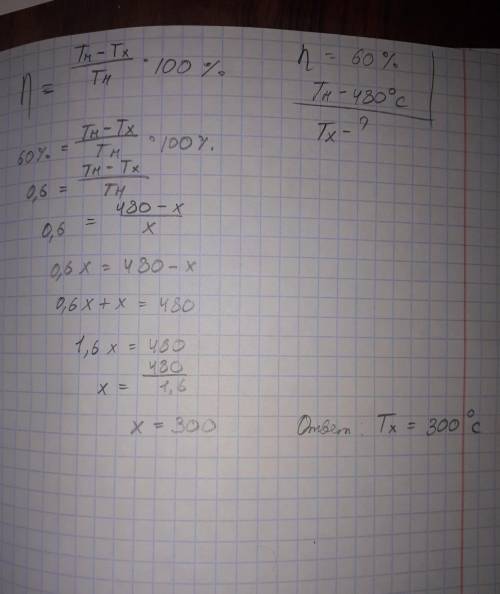 η = (Tн – Tx)/Tн · 100 %.
η = 60 %
Tн – 480°C
Tx – ?
60% = (Tн – Tx)/Tн · 100%.
0,6 = (Tн – Tx)/Tн
0,6 = (480 – x)/x
0,6x = 480 – x
0,6x + x = 480
1,6x = 480
x = 480/1,6
x = 300
Ответ: Tx = 300°C